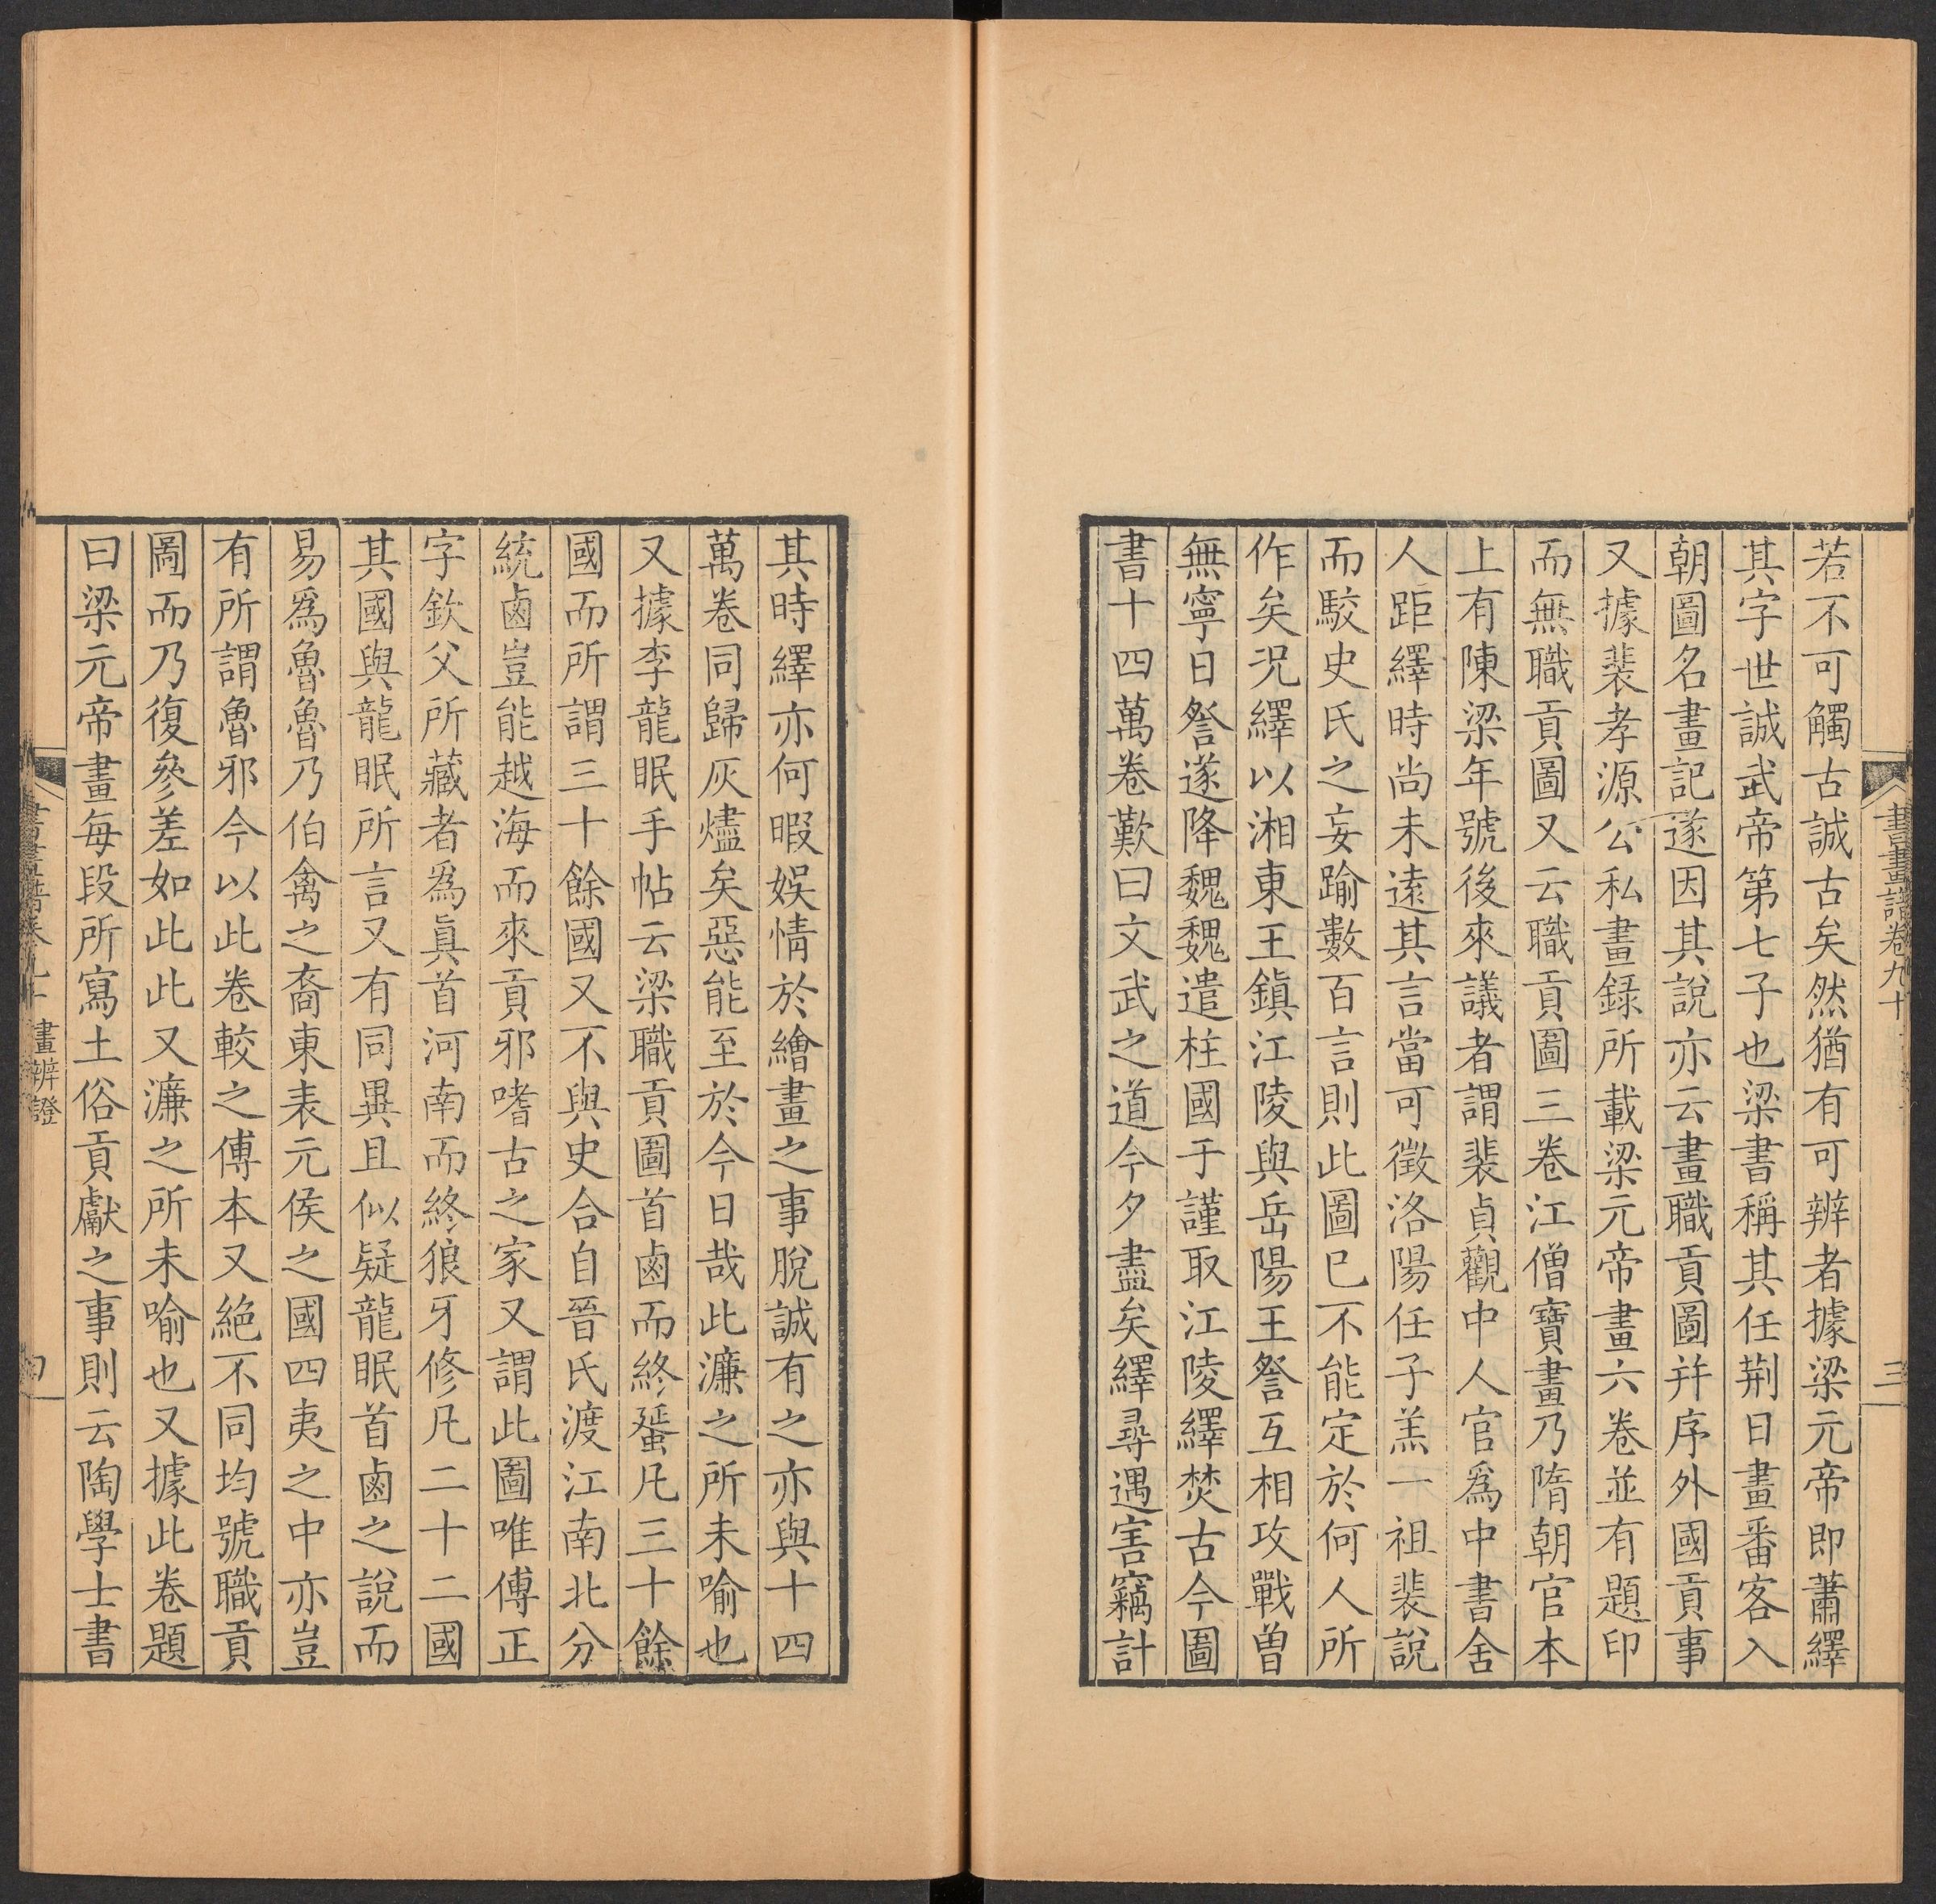 書畫譜卷九十
三
若不可觸古誠古矣然猶有可辨者據梁元帝即蕭繹
其字世誠武帝第七子也梁書稱其任荆日畫番客入
朝圖名畫記遂因其說亦云畫職貢圖并序外國貢事
又據裴孝源公私畫錄所載梁元帝畫六卷並有題印
而無職貢圖又云職貢圖三卷江僧寶畫乃隋朝官本
上有陳梁年號後來議者謂裴貞觀中人官爲中書舍
人距繹時尚未遠其言當可徵洛陽任子羔一祖裴說
而駮史氏之妄踰數百言則此圖已不能定於何人所
作矣况繹以湘東王鎮江陵與岳陽王詧互相攻戰曽
無寧日詧遂降魏魏遣柱國于謹取江陵繹焚古今圖
書十四萬卷歎曰文武之道今夕盡矣繹尋遇害竊計
其時繹亦何暇娛情於繪畫之事脫誠有之亦與十四
萬卷同歸灰燼矣惡能至於今日哉此濂之所未喻也
又據李龍眠手帖云梁職貢圖首鹵而終蜑凡三十餘
國而所謂三十餘國又不與史合自晉氏渡江南北分
統鹵豈能越海而來貢邪嗜古之家又謂此圖唯傅正
字欽父所藏者爲眞首河南而終狼牙修凡二十二國
其國與龍眠所言又有同異且似疑龍眠首鹵之說而
易爲魯魯乃伯禽之裔東表元侯之國四夷之中亦豈
有所謂魯邪今以此卷較之傅本又絕不同均號職貢
圖而乃復參差如此此又濂之所未喻也又據此卷題
曰梁元帝畫每段所寫土俗貢獻之事則云陶學士書
畫辨證